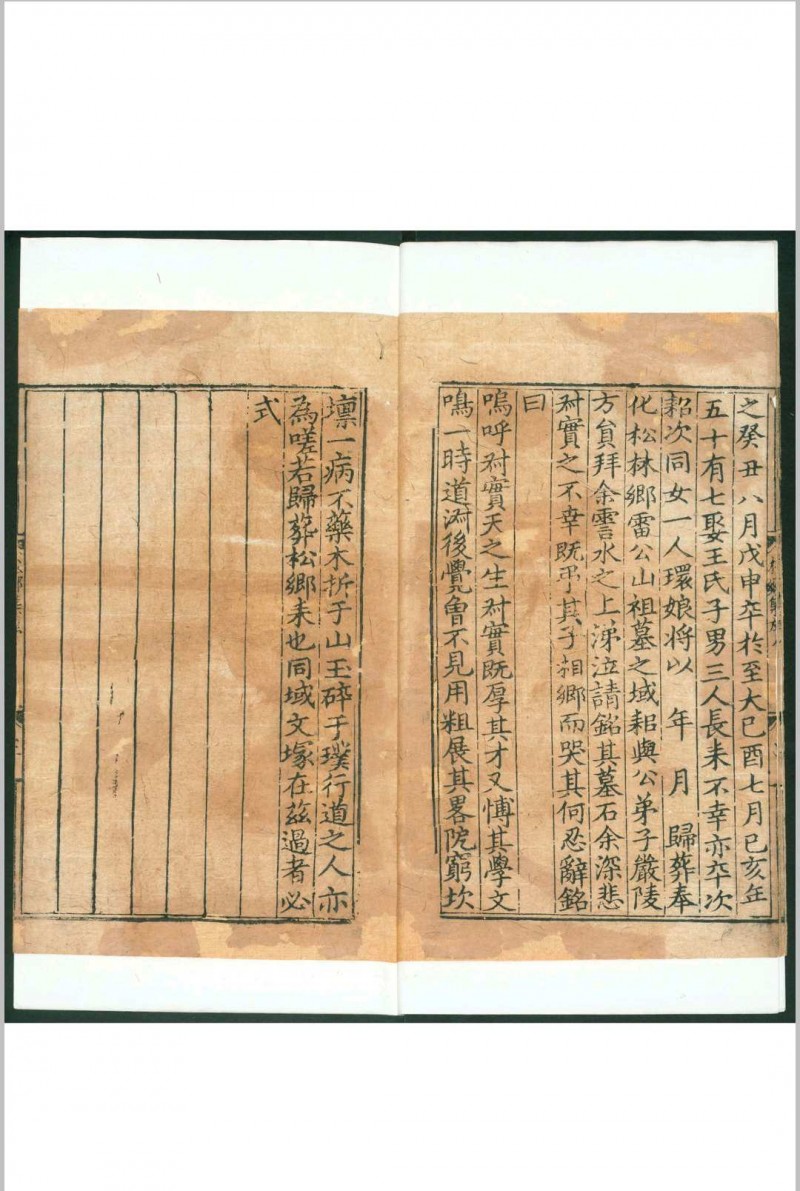 之癸丑八月戊申卒於至大己酉七月己亥年
五十有七娶王氏子男三人長耒不幸亦卒次
耜次同女一人環娘將以　年　月　歸葬奉
化松林鄉雷公山祖墓之域耜與公弟子嚴陵
方貟拜余霅水之上涕泣請銘其墓石余深悲
叔實之不幸旣弔其子耜鄉而哭其何忍辭銘
曰
嗚呼叔實天之生叔實旣厚其才又愽其學文
鳴一時道淑後覺曾不見用粗展其畧阨窮坎
壈一病不藥木折于山玉碎于璞行道之人亦
為嗟若歸葬松鄉耒也同域文塚在茲過者必
式